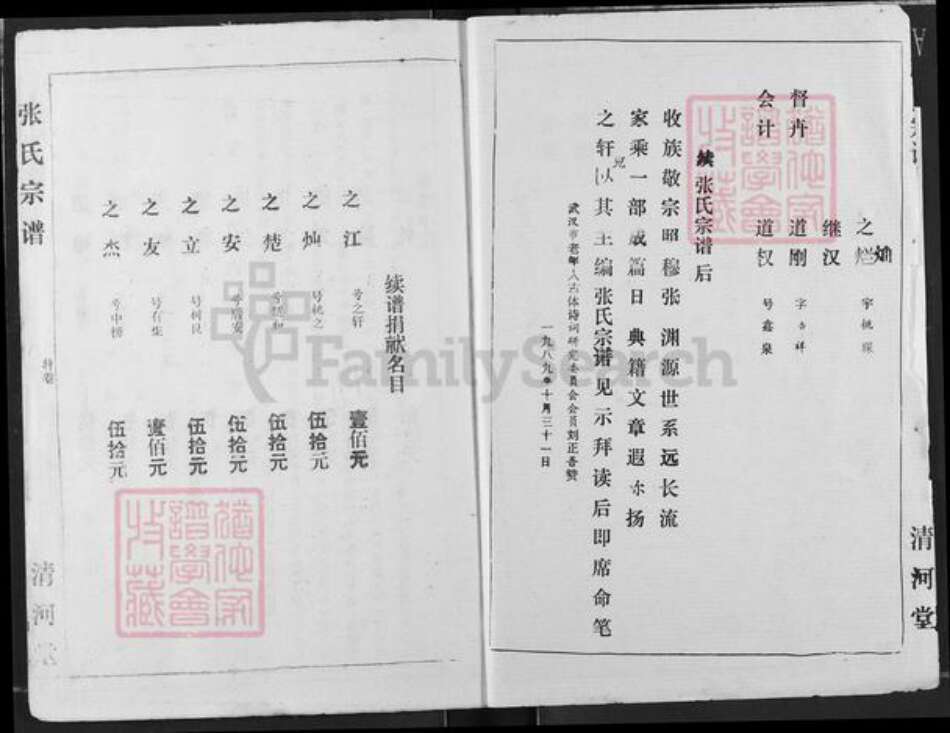 之灿 字桃琛
继汉
督卉 道刚 字吉祥
会计 道权 号鑫泉
续张氏宗谱后
收族敬宗昭穆张 渊源世系远长流
家乘一部成篇日 典籍文章遐迩扬
之轩兄以其主编张氏宗谱见示拜读后即席命笔
武汉市老年人古体诗词研究会会员刘正吾赞
一九八九年十月三十一日
清河堂
续谱捐献名目
之江 号之轩 壹佰元
之灿 号桃之 伍拾元
之楚 伍拾元
之安 伍拾元
之立 号树良 伍拾元
之友 号有柴 壹佰元
之杰 号中榜 伍拾元
张氏宗谱
清河堂
FamilySearch